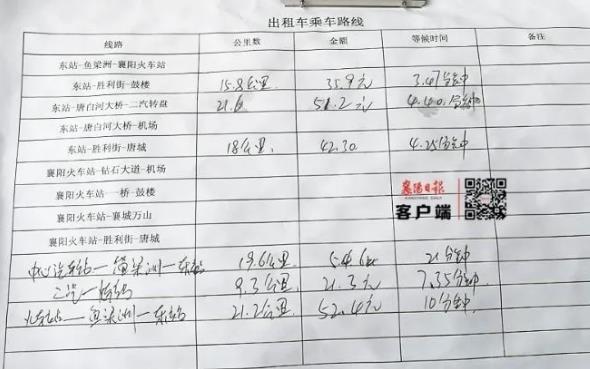 出租车乘车路线
线路 公里数 金额 等候时间 备注
东站-鱼梁洲-襄阳火车站
东站-胜利街-鼓楼 15.8公里 35.9元 3.47分钟
东站-唐白河大桥-二汽转盘 21.6 51.2元 4.40分钟
东站-唐白河大桥-机场
东站-胜利街-唐城 18公里 42.30 4.25分钟
襄阳火车站-钻石大道-机场
襄阳火车站-一桥-鼓楼
襄阳火车站-襄城万山
襄阳火车站-胜利街-唐城
襄阳日报
客户端
中心汽车站—鱼梁洲—东站 19.6公里 54.6元 21分钟
二汽— 9.3公里 21.3元 7.35分钟
火车站—鱼梁洲—东站 21.2公里 52.4元 10分钟